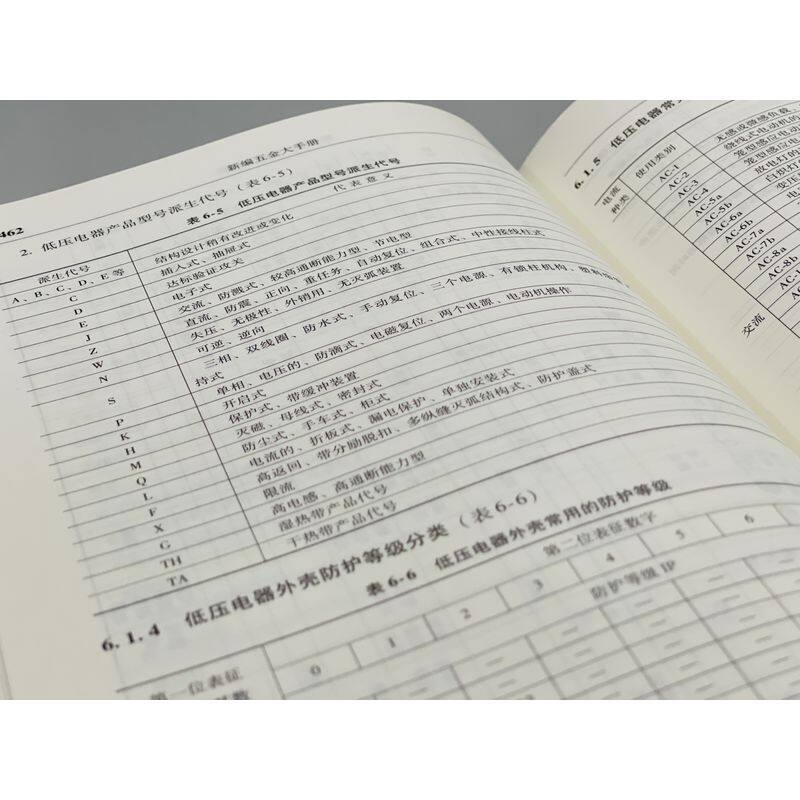 新编五金大手册
462
2. 低压电器产品型号派生代号（表6-5）
表 6-5 低压电器产品型号派生代号
派生代号 代 表 意 义
A、B、C、D、E 等 结构设计稍有改进或变化
C 插入式、抽屉式
D 达标验证攻关
E 电子式
J 交流、防溅式、较高通断能力型、节电型
Z 直流、防震、正向、重任务、自动复位、组合式、中性接线柱式
W 失压、无极性、外销用、无灭弧装置
N 可逆、逆向
S 三相、双线圈、防水式、手动复位、三个电源、有锁住机构、塑料
持式
P 单相、电压的、防滴式、电磁复位、两个电源、电动机操作
K 开启式
H 保护式、带缓冲装置
M 灭磁、母线式、密封式
Q 防尘式、手车式、柜式
L 电流的、折板式、漏电保护、单独安装式
F 高返回、带分励脱扣、多纵缝灭弧结构式、防护盖式
X 限流
G 高电感、高通断能力型
TH 湿热带产品代号
TA 干热带产品代号
6.1.4 低压电器外壳防护等级分类（表6-6）
表 6-6 低压电器外壳常用的防护等级
第一位表征数字
0 1 2 3 4 5 6
防护等级 IP
第一位表征
6.1.5 低压电器常
电流
种类
使用类别
AC-1 无感或微感负载、
AC-2 绕线式电动机的
AC-3 笼型感应电动
AC-4 笼型感应电动
AC-5a 放电灯的
AC-5b 白炽灯
AC-6a 变压
AC-6b
AC-7a
AC-7b
AC-8a
AC-8b
交流